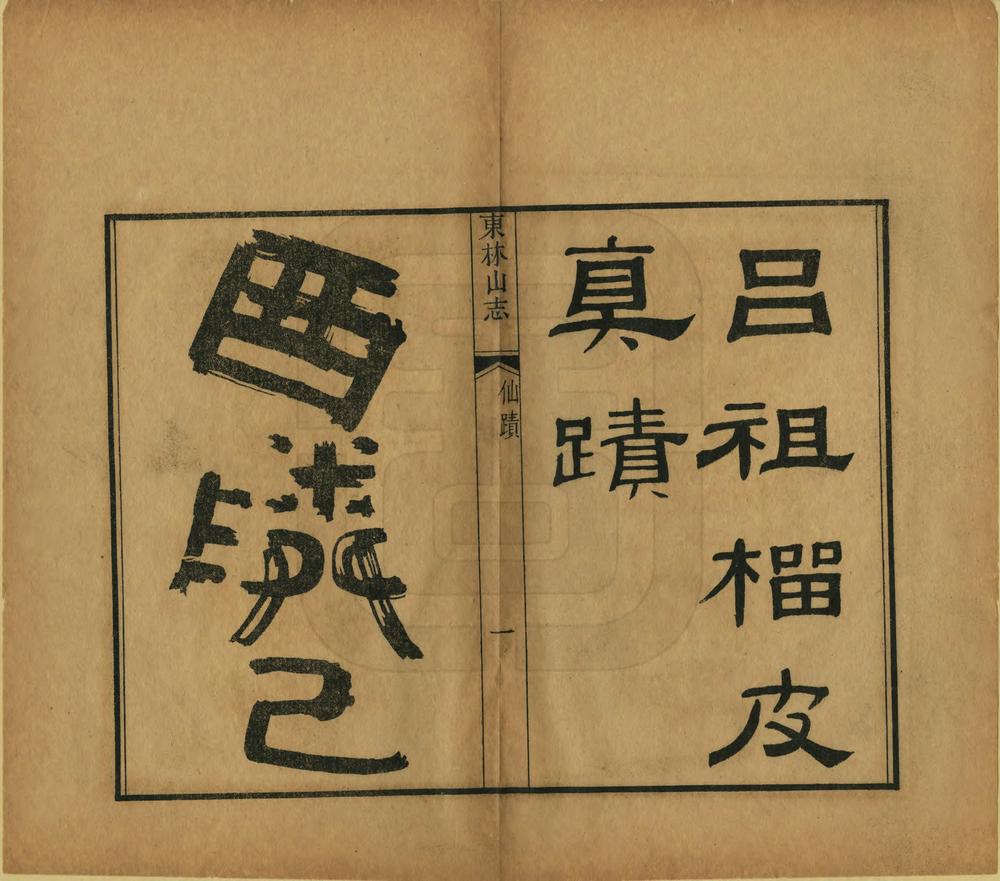 呂祖榴皮
真蹟
東林山志
仙蹟
一
西隣已